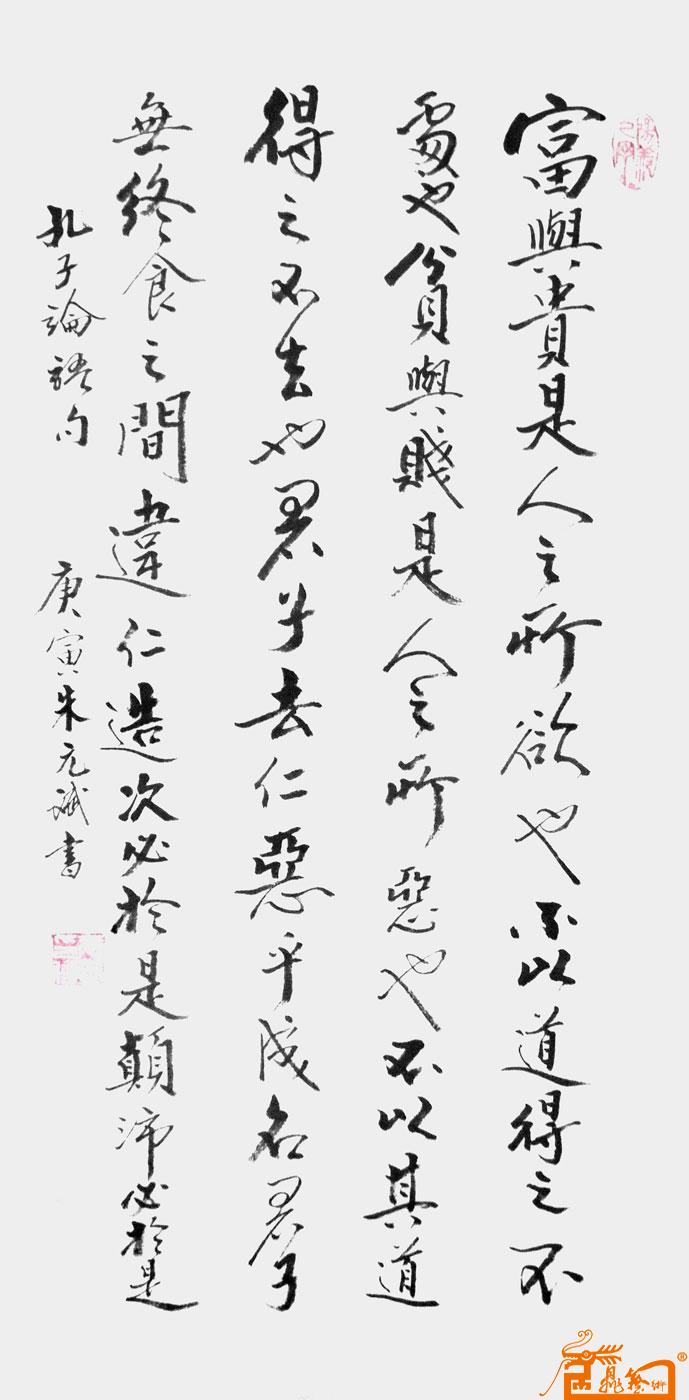 富與貴是人之所欲也不以道得之不
處也貧與賤是人之所惡也不以其道
得之不去也君子去仁惡乎成名君子
無終食之間違仁造次必於是顛沛必於是
孔子論語句 庚寅朱元斌書